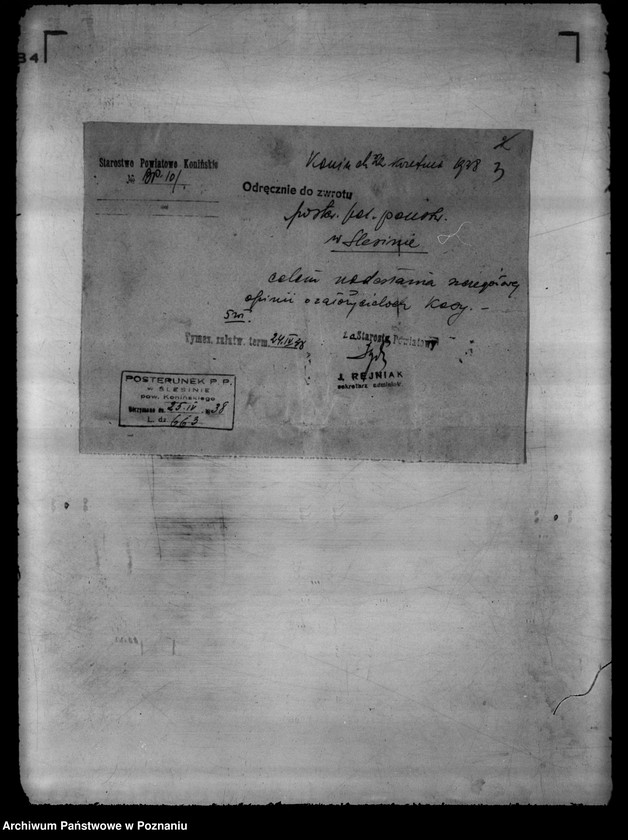 34
Starostwo Powiatowe Konińskie
№ BP. 10/1
Konin d. 22 kwietnia 1938
Odręcznie do zwrotu
poster. pol. państw.
w Ślesinie
celem nadesłania szczegółowej
opinii o założycielach Kasy. –
Wymez. załatw. term. 24.IV.38
za Starostę Powiatowy
J. REJNIAK
sekretarz administr.
POSTERUNEK P. P.
w ŚLESINIE
pow. Konińskiego
Otrzymano dn. 25.IV 1938
L. dz. 663
Archiwum Państwowe w Poznaniu